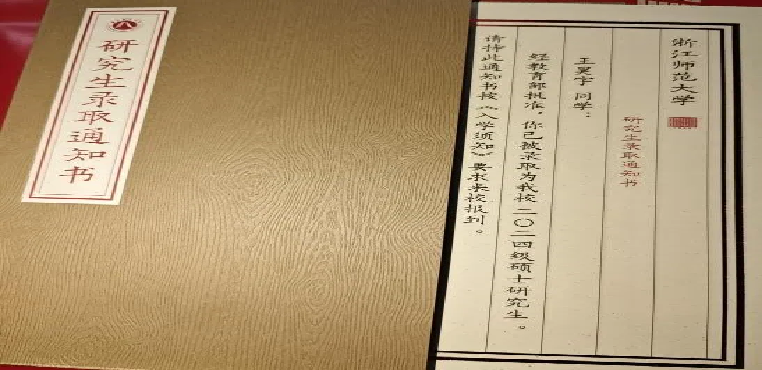 研究生录取通知书
浙江师范大学
研究生录取通知书
王昊宇 同学：
经教育部批准，你已被录取为我校二〇二四级硕士研究生。
请持此通知书按《入学须知》要求来校报到。